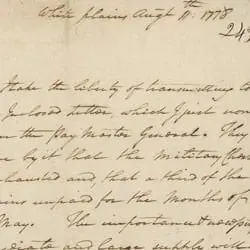 White plains Augt 11th 1778
24
take the liberty of transmitting to
Inclosed letter, which I just
the Pay Master General. They
by it that the Military Ches
hausted and, that a third of the
ains unpaid for the Months of
May. The importance &
diate and large supply